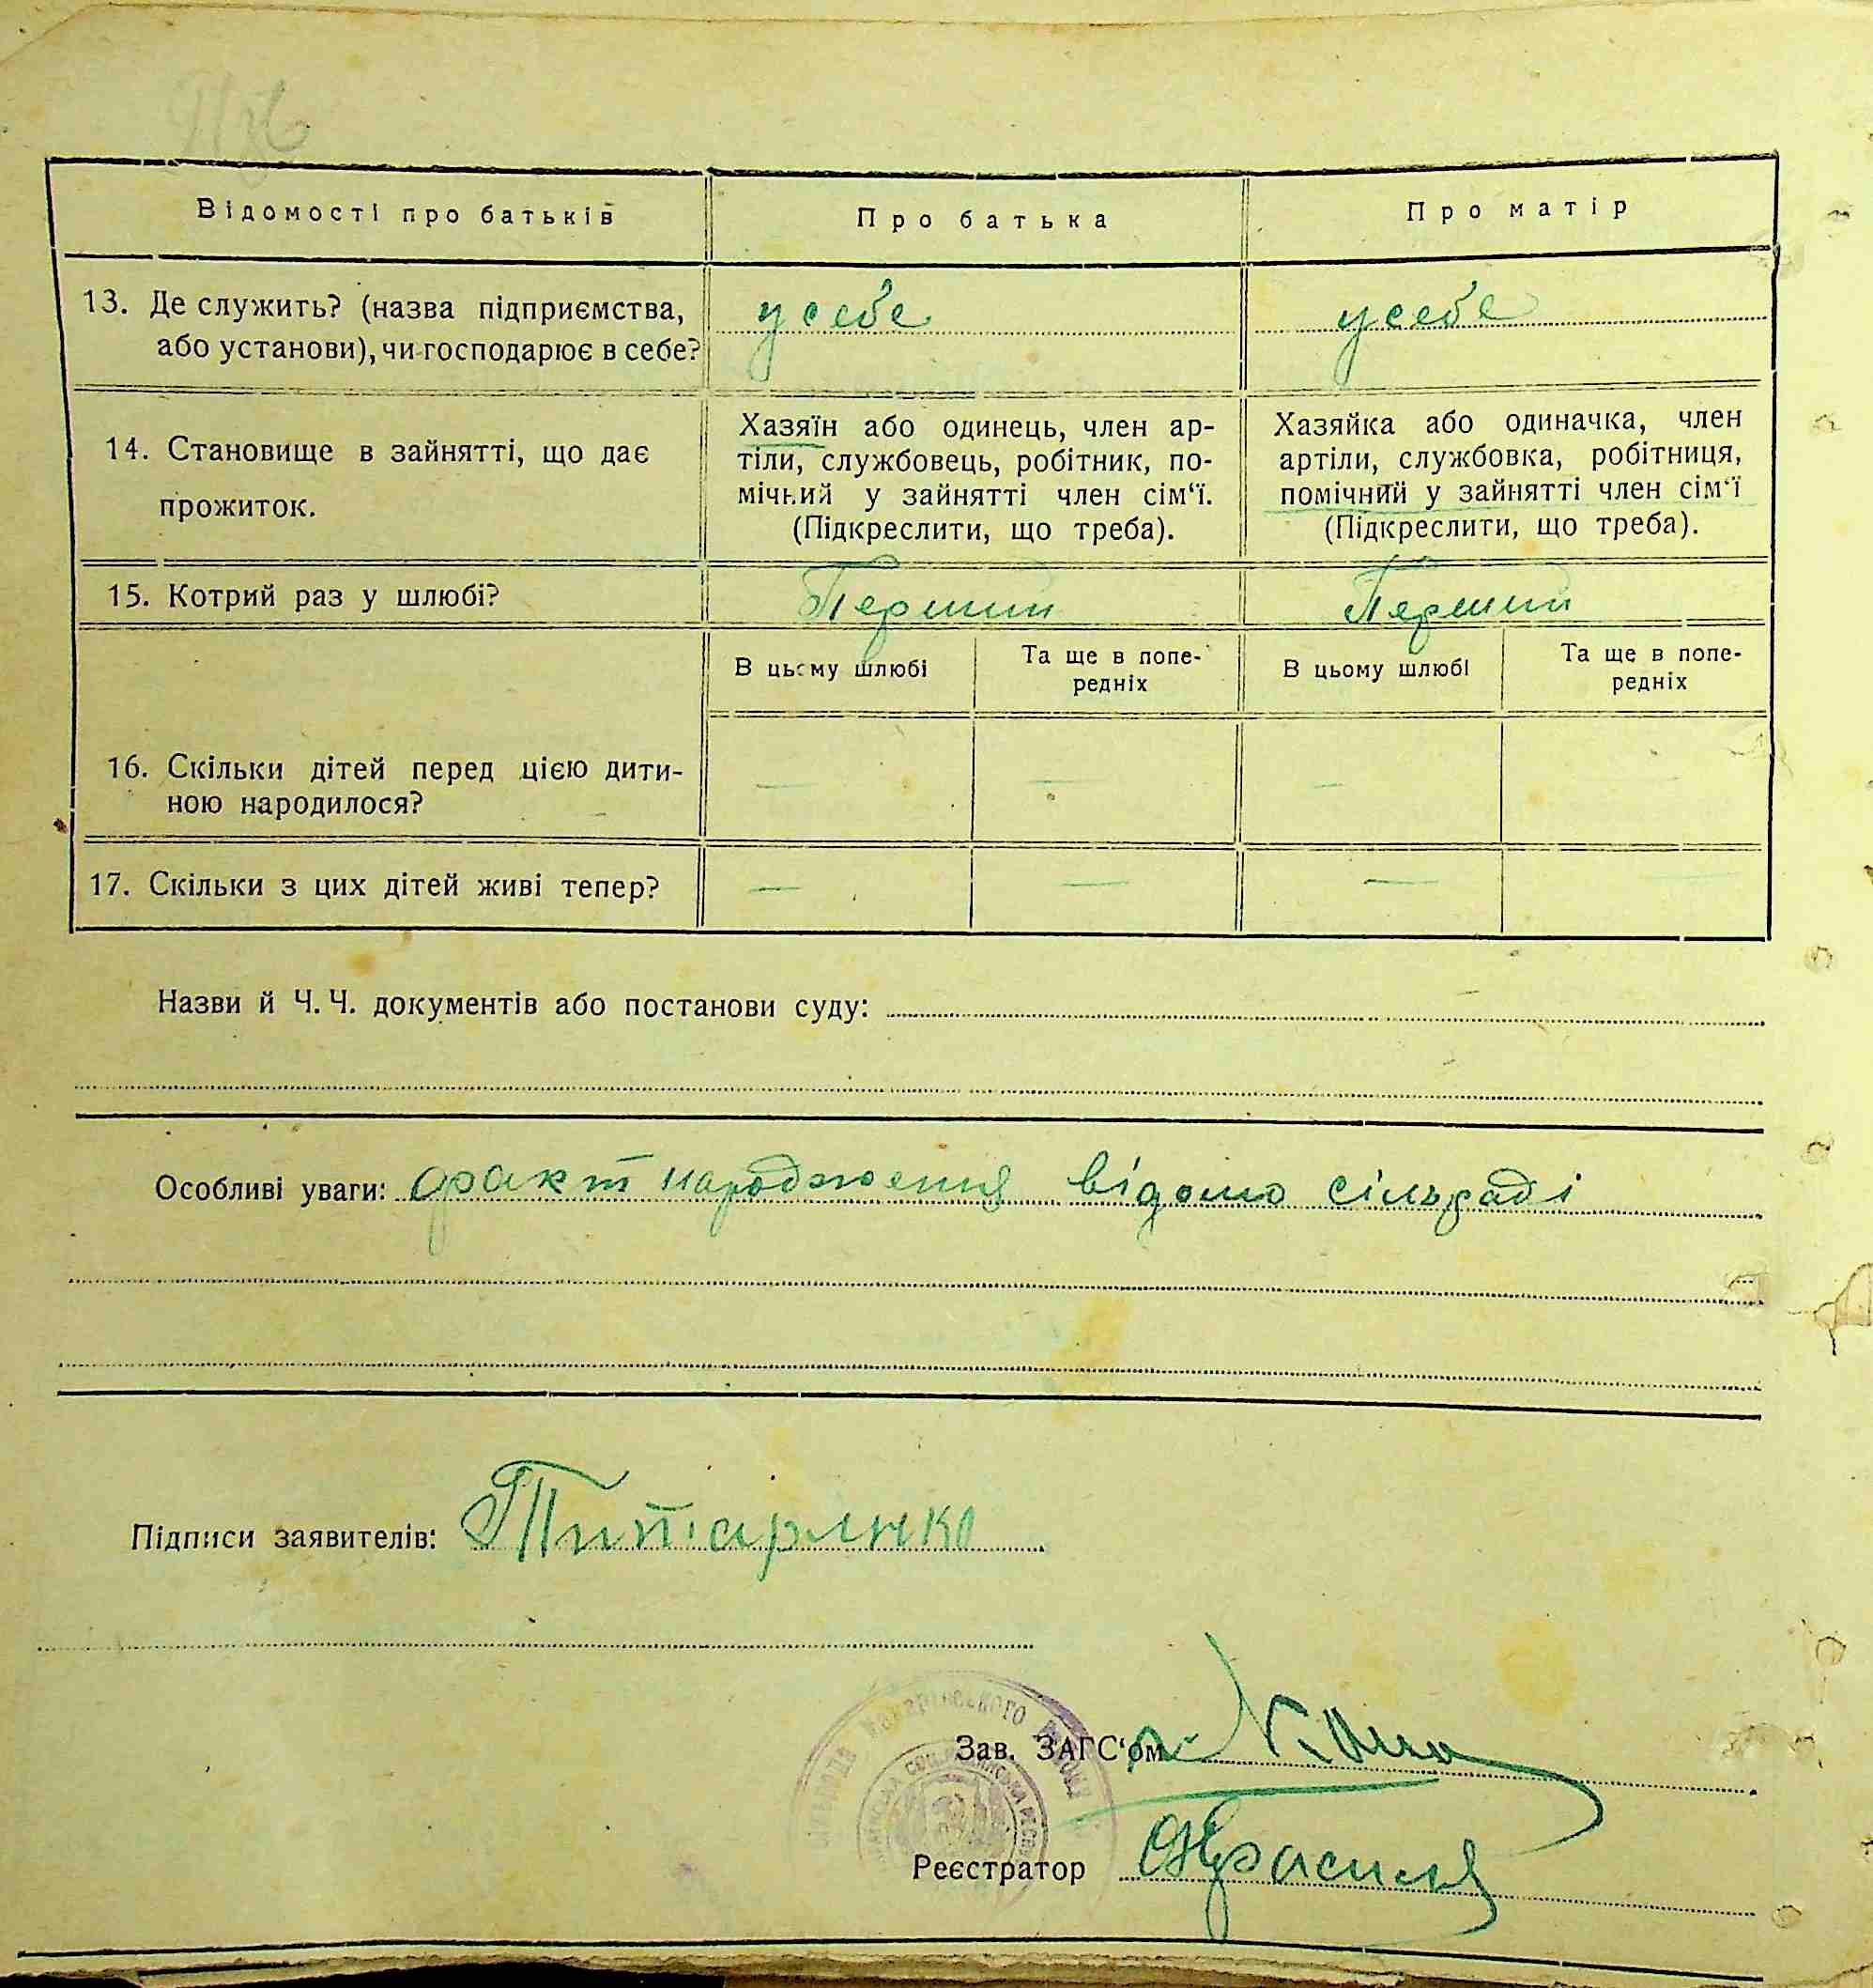 Відомості про батьків
Про батька
Про матір
13. Де служить? (назва підприємства,
або установи), чи господарює в себе?
у себе
у себе
14. Становище в зайнятті, що дає
прожиток.
Хазяїн або одинець, член ар-
тіли, службовець, робітник, по-
мічний у зайнятті член сім‘ї.
(Підкреслити, що треба).
Хазяйка або одиначка, член
артіли, службовка, робітниця,
помічний у зайнятті член сім‘ї
(Підкреслити, що треба).
15. Котрий раз у шлюбі?
Перший
Перший
В цьому шлюбі
Та ще в попе-
редніх
В цьому шлюбі
Та ще в попе-
редніх
16. Скільки дітей перед цією дити-
ною народилося?
—
—
—
—
17. Скільки з цих дітей живі тепер?
—
—
—
—
Назви й Ч. Ч. документів або постанови суду:
Особливі уваги: факт народження відомо сільраді
Підписи заявителів: Титаренко
Зав. ЗАГС‘ом
Реєстратор